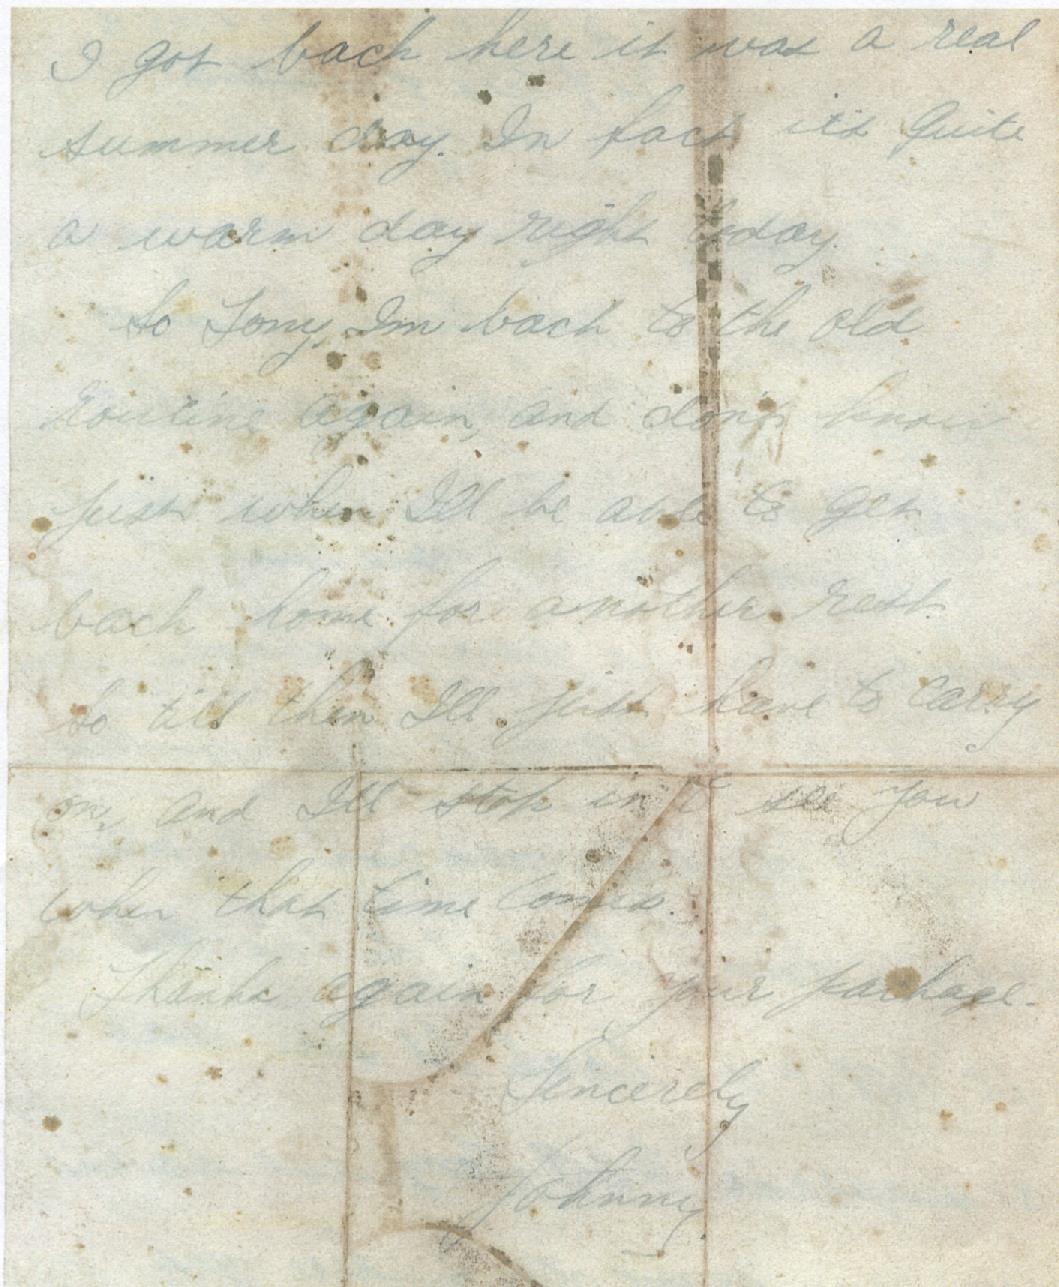 I got back here it was a real
summer day. In fact its Quite
a warm day right today.
So Tony, Im back to the old
routine again, and don't know
just when I'll be able to get
back home for another rest.
So till then I'll just have to carry
on, and I'll stop in t see you
when that time comes.
Thanks again for your package.
Sincerely
Johnny